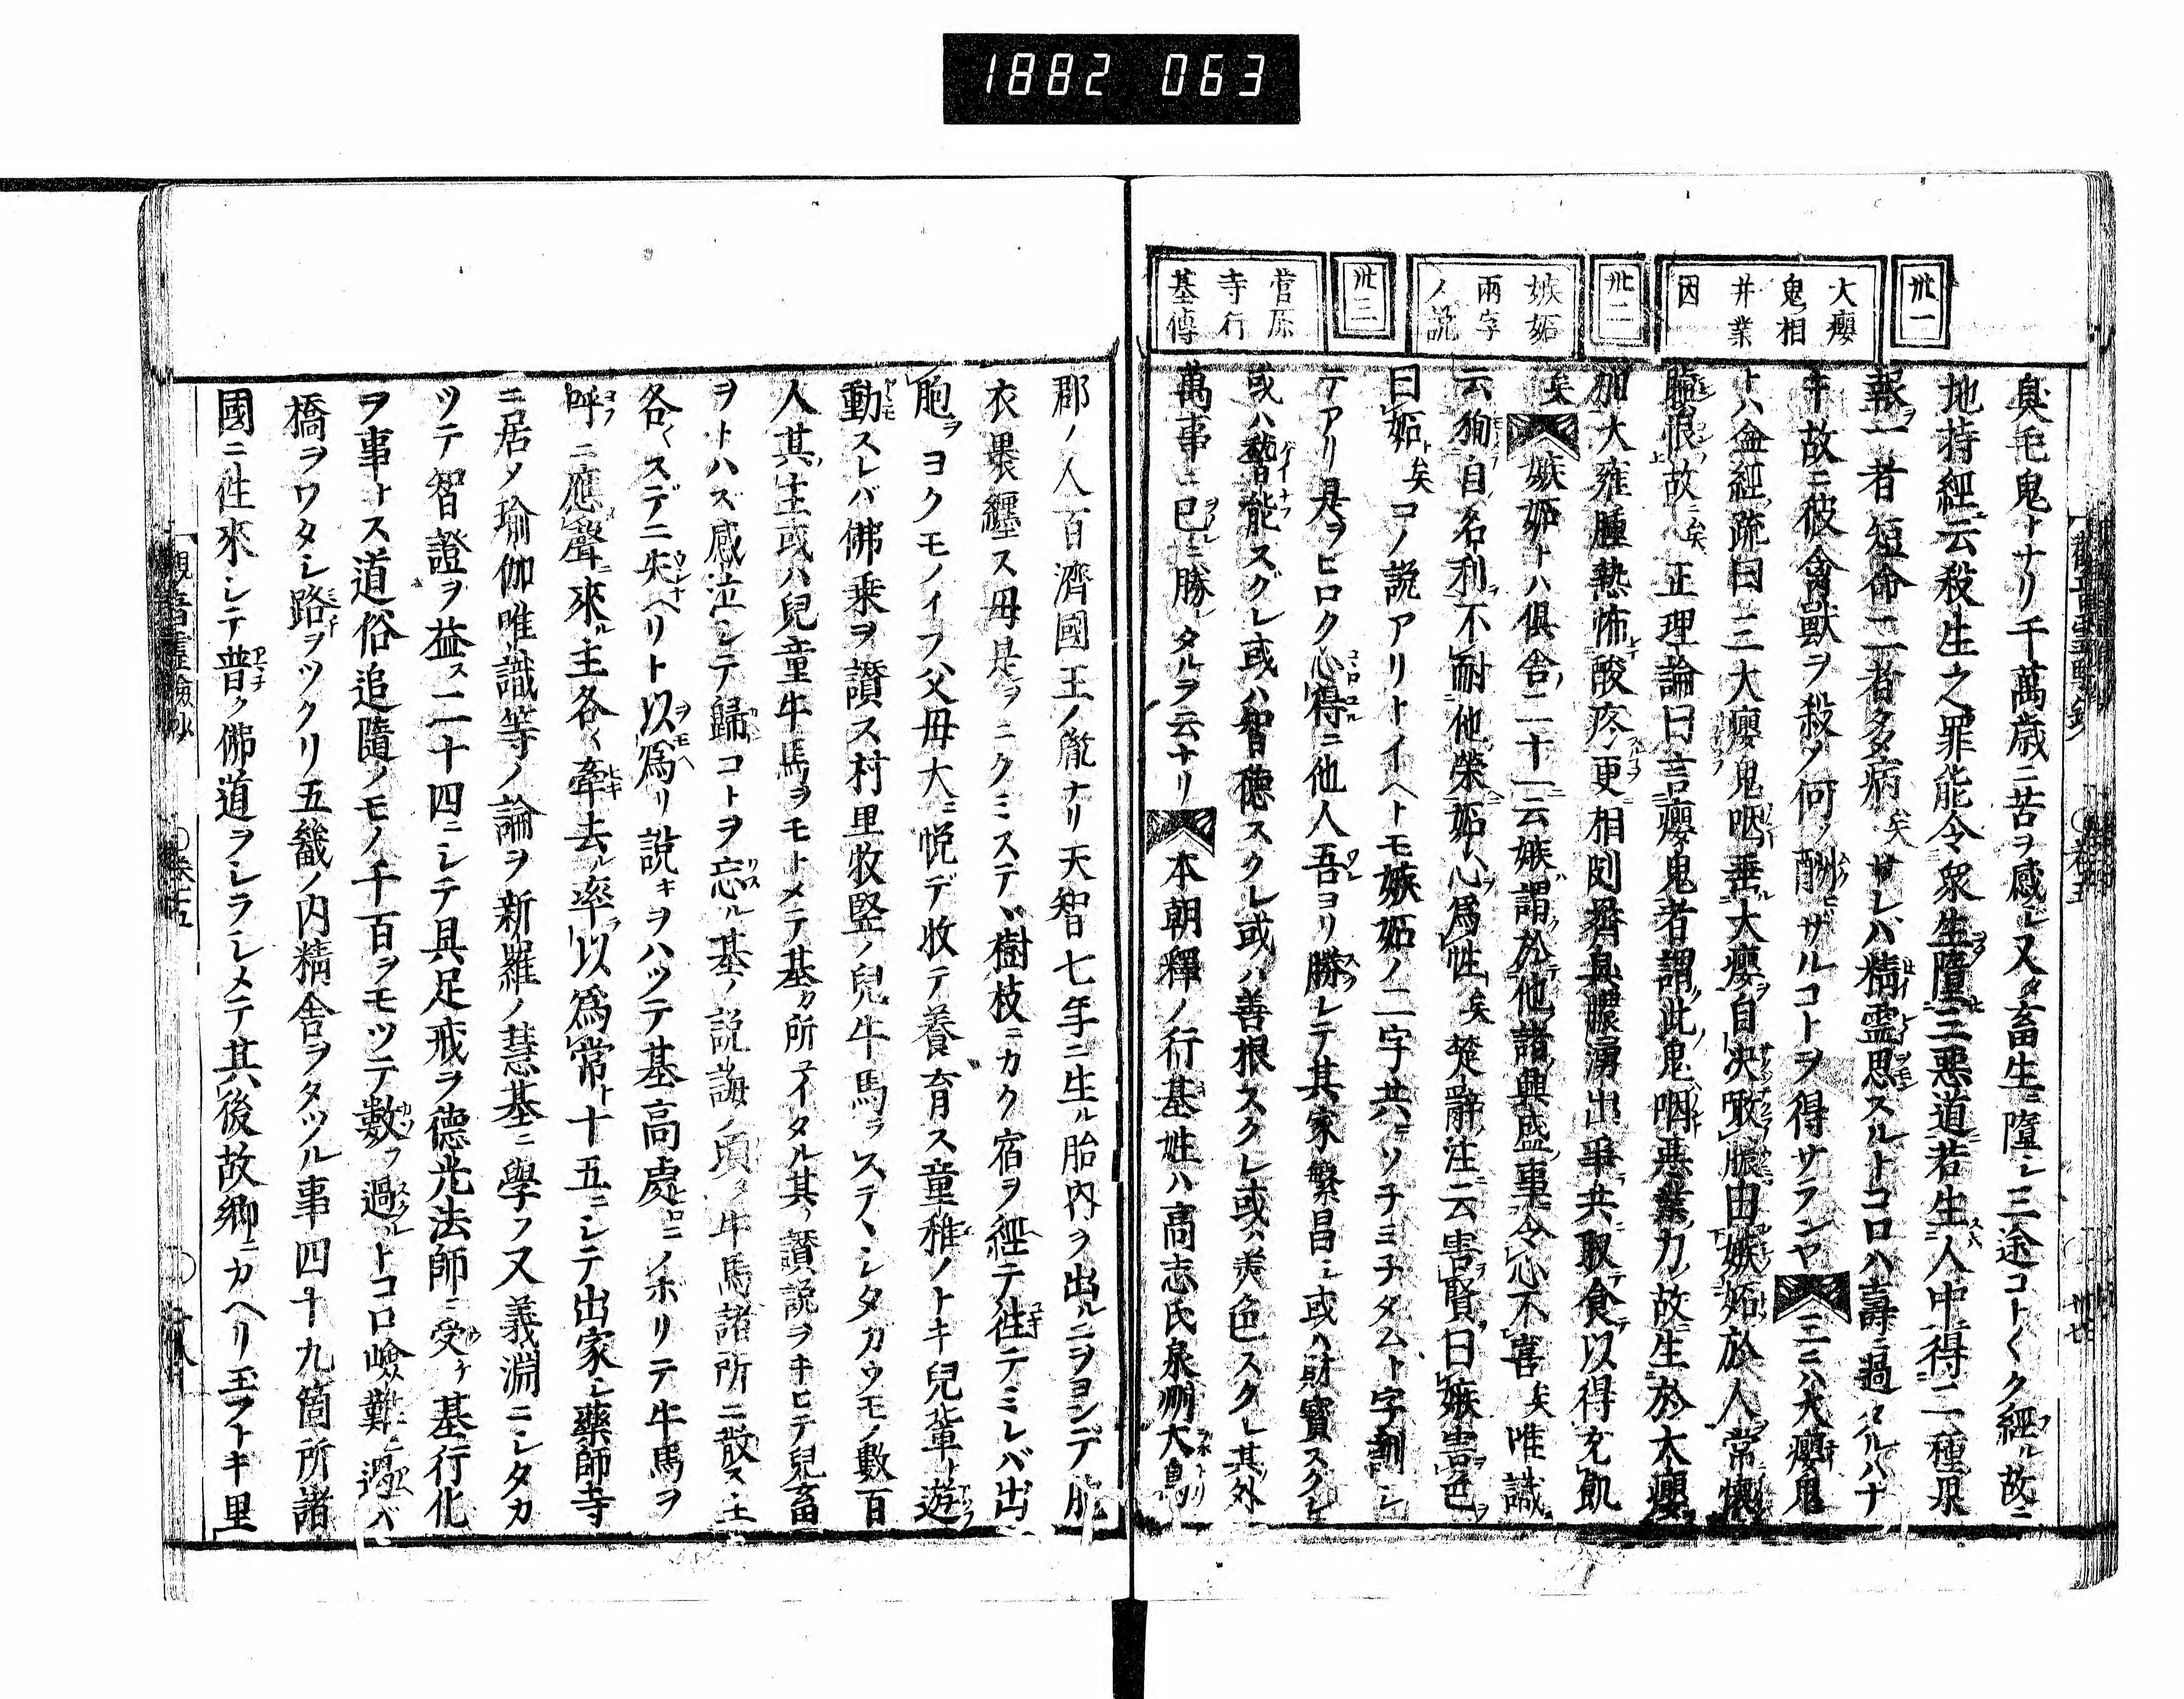 1882 063
卅一
大癭
鬼相
并業
因
卅二
嫉妬
兩字
ノ説
卅三
菅原
寺行
基傳
臭毛鬼トナリ千萬歳ニ苦ヲ感シ又タ畜生ニ墮シ三途コトヾク經ル故ニ
地持經云殺生之罪能令衆生墮三惡道若生人中得二種果
報一者短命二者多病矣サレバ精霊思スルトコロハ壽ニ過タルハナ
キ故ニ彼禽獸ヲ殺メ何ソ酬ザルコトヲ得サランヤ三ニハ大癭鬼
トハ会經疏曰三大癭鬼咽垂大癭自决噉膿由嫉妬於人常懷
恨故矣正理論曰言癭鬼者謂此鬼咽惡業力故生於大癭
如大雍腫熱怖酸疼更相㓟臭膿湧出爭共取食以得充飢
矣嫉妬トハ倶舎二十一云嫉謂於他諸興盛事令心不喜矣唯識
云徇自名利不耐他榮妬心爲性矣楚辭注云害賢曰嫉害色
曰妬矣コノ説アリトイヘトモ嫉妬ノ二字共ニソチヨチタムト字訓シ
テアリ是ヲヒロク心得ニ他人吾ヨリ勝レテ其家繁昌シ或ハ財寶スクレ
或ハ藝能スグレ或ハ智德スクレ或ハ善根スクレ或ハ美色スクレ其外
萬事ニ已ニ勝レタルヲ云ナリ本朝釋ノ行基姓ハ高志氏泉州大鳥
郡ノ人百濟國王ノ胤ナリ天智七年ニ生ル胎内ヲ出ルニヲヨンデ胞
衣褁纏ス母是ヲニクミステヽ樹枝ニカク宿ヲ經テ往テミレバ出
胞ヲヨクモノイフ父母大ニ悦デ收テ養育ス童稚ノトキ兒輩ト遊
動スレバ佛乗ヲ讃ス村里牧竪ノ兒牛馬ヲステヽシタカウモノ數百
人其主或ハ兒童牛馬ヲモトメテ基カ所ヱイタル其ノ讃説ヲキヒテ兒畜
ヲトハズ感泣シテ歸コトヲ忘ル基ノ説誨ノ項タ牛馬諸所ニ散ス主
各々スデニ失ヘリト以爲リ説キヲハツテ基高處ニノボリテ牛馬ヲ
呼ニ應聲來ル主各々牽去ル率以爲常ト十五ニシテ出家シ藥師寺
ニ居メ瑜伽唯識等ノ論ヲ新羅ノ慧基ニ學フ又義淵ニシタカ
ツテ智證ヲ益ス二十四ニシテ具足戒ヲ德光法師ニ受ケ基行化
ヲ事トス道俗追隨ノモノ千百ヲモツテ數フ過ルトコロ嶮難ニ遇バ
橋ヲワタシ路ヲツクリ五畿ノ内精舎ヲタツル事四十九箇所諸
國ニ往來シテ普ク佛道ヲシラシメテ其後故郷ニカヘリ玉フトキ里